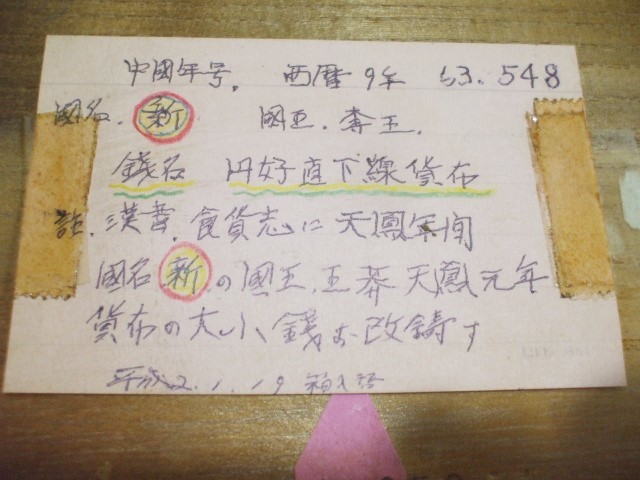 中國年号. 西暦9年 53.548
國名. 新 國王. 莽王.
錢名 円好直下線貨布
註.漢書.食貨志に天鳳年间
國名新の國王.王莽天鳳元年
貨布の大小錢お改鋳す
平成2.1.19